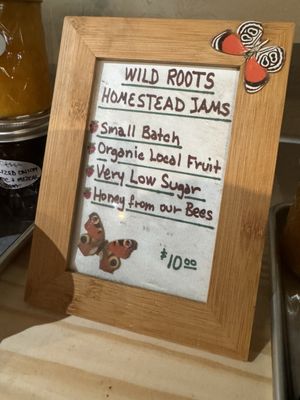 WILD ROOTS
HOMESTEAD JAMS
Small Batch
Organic Local Fruit
Very Low Sugar
Honey from our Bees
$10.00